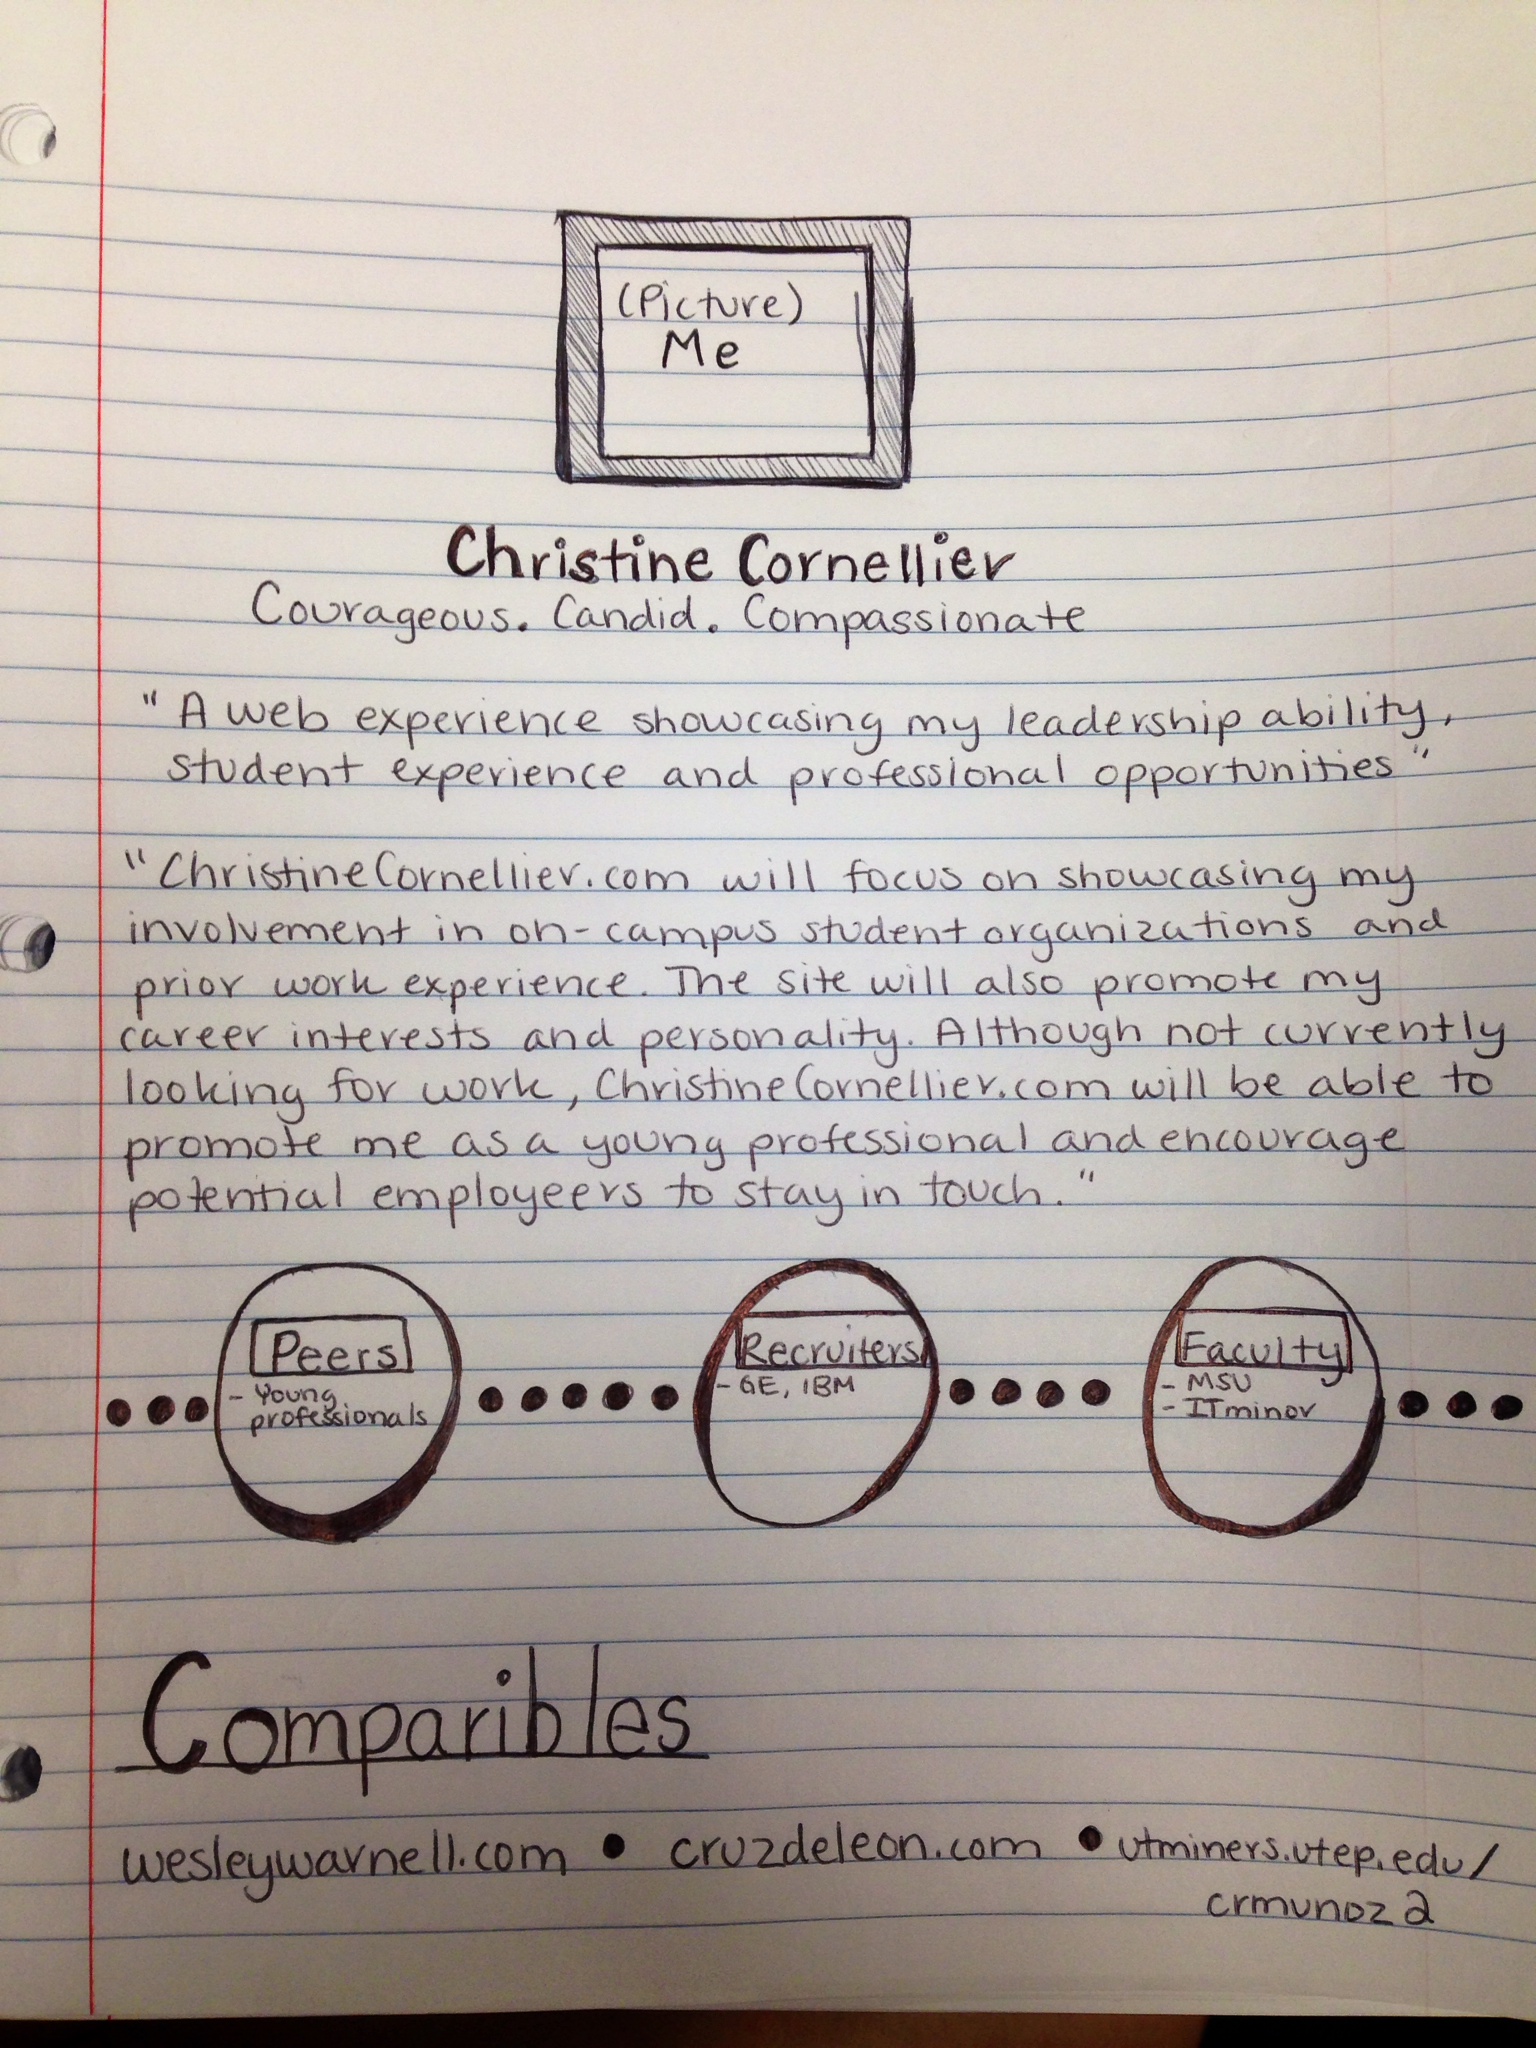 (Picture)
Me
Christine Cornellier
Courageous. Candid. Compassionate
"A web experience showcasing my leadership ability,
student experience and professional opportunities"
"ChristineCornellier.com will focus on showcasing my
involvement in on-campus student organizations and
prior work experience. The site will also promote my
career interests and personality. Although not currently
looking for work, ChristineCornellier.com will be able to
promote me as a young professional and encourage
potential employeers to stay in touch."
Peers
- Young
professionals
Recruiters
- GE, IBM
Faculty
- MSU
- IT minor
Comparibles
wesleywarnell.com • cruzdeleon.com • utminers.utep.edu/
crmunoz2